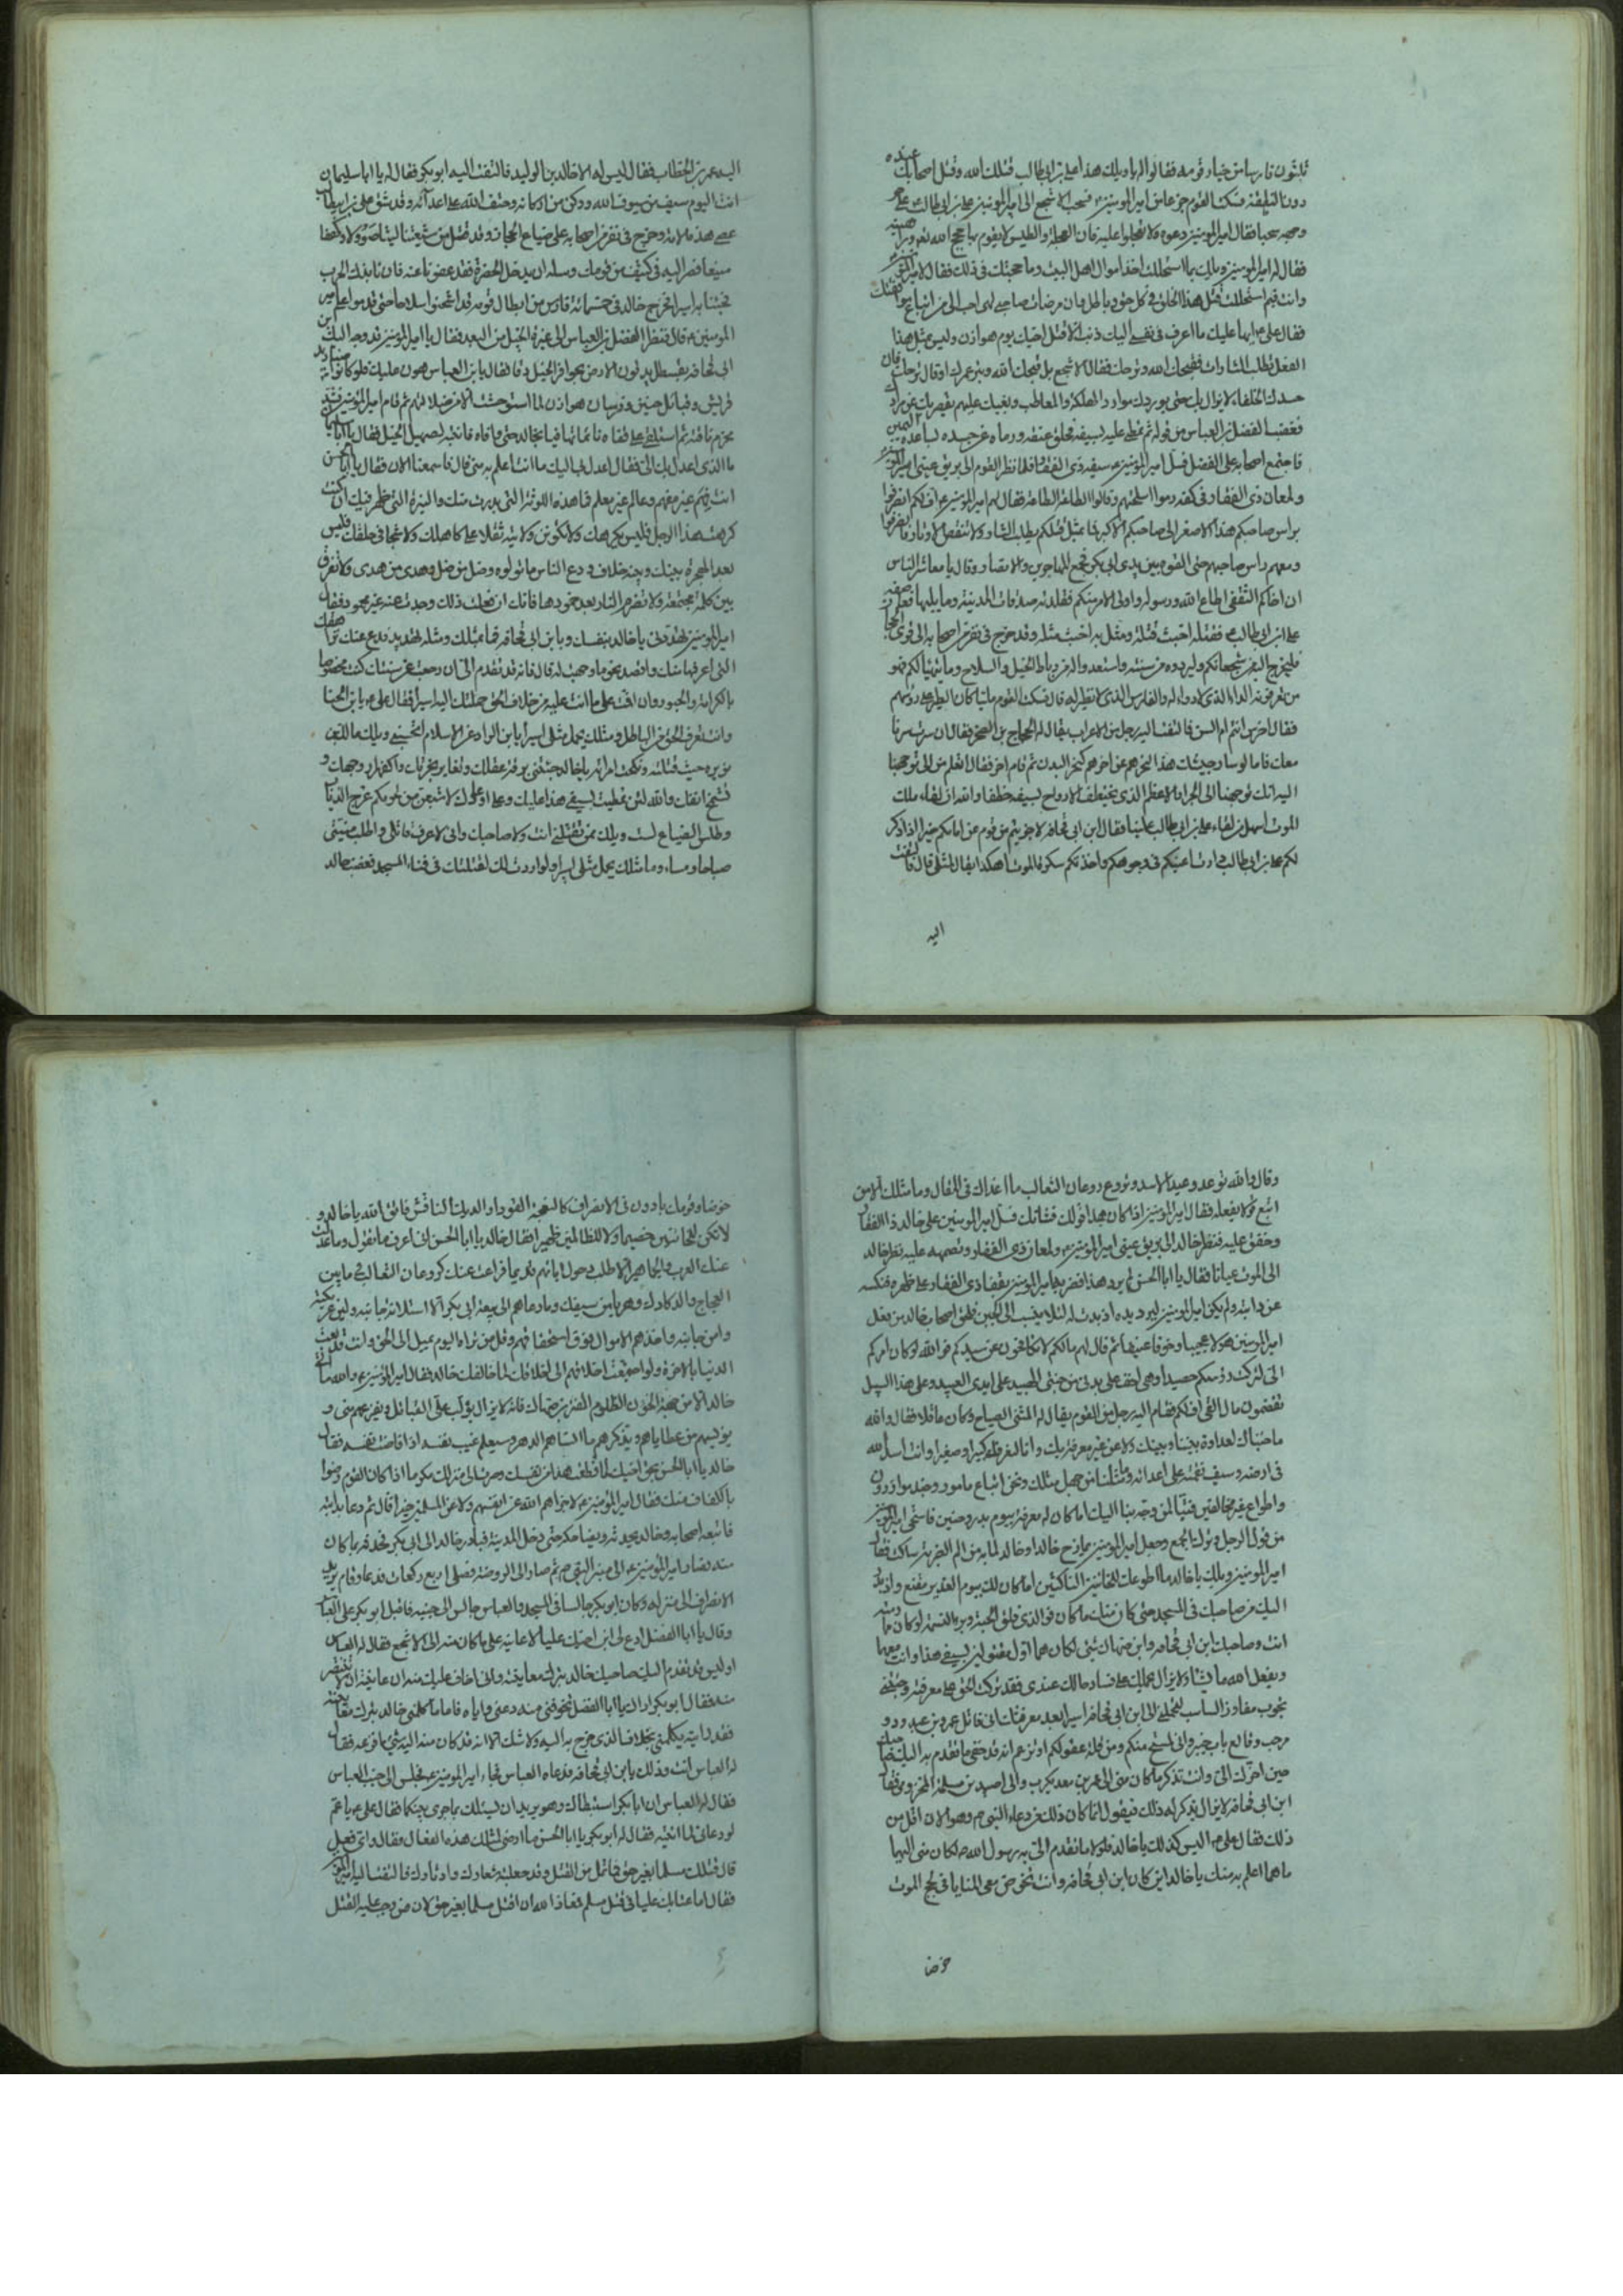 ثلثون فارسا من خيار قومه فقالوا له يا ويلك هذا علي بن ابي طالب قتلك الله وقتل اصحابك عنده
دون النطيفة فسكت القوم جزعا من امير المؤمنين ع فسحب الاشجع الى امير المؤمنين علي بن ابي طالب ع على حر
وجهه سحبا فقال امير المؤمنين دعوه ولا تعجلوا عليه فان العجلة والطيش لا يقوم بها حجج الله
فقال له امير المؤمنين ويلك بما استحللت اخذ اموال اهل البيت وما حجتك في ذلك فقال
وانت فيم استحللت قتل هذا الخلق في كل حق وباطل وان مرضات صاحبي لهي احب الي من اتباع موافقتك
فقال علي ع ايها عليك ما اعرف في نفسي اليك ذنبا الا قتل اخيك يوم هوازن وليس بمثل هذا
الفعل تطلب الثارات فقبحك الله وترحك فقال الاشجع بل قبحك الله وبتر عمرك او قال ترحك فان
حسدك الخلفاء لا يزال بك حتى يوردك موارد الهلكة والمعاطب وبغيك عليهم يقصر بك عن مرادك
فغضب الفضل بن العباس من قوله ثم تمطى عليه بسيفه فحلق عنقه ورماه عن جسده بساعده اليمين
فاجتمع اصحابه على الفضل فسل امير المؤمنين ع سيفه ذي الفقار فلما نظر القوم الى بريق عيني امير المؤمنين
ولمعان ذي الفقار في كفه رموا اسلحتهم وقالوا الطاعة الطاعة فقال لهم امير المؤمنين ع اف لكم انصرفوا
براس صاحبكم هذا الاصغر الى صاحبكم الاكبر فما بمثل قتلكم يطلب الثار ولا تنقض الاوتار فانصرفوا
ومعهم راس صاحبهم حتى القوه بين يدي ابي بكر فجمع المهاجرين والانصار وقال يا معاشر الناس
ان اخاكم الثقفي اطاع الله ورسوله واولى الامر منكم فقلدته صدقات المدينة وما يليها
علي بن ابي طالب ع فقتله اخبث قتلة ومثل به اخبث مثلة وقد خرج في نفر من اصحابه الى قرى الحجاز
فليخرج اليه من شجعانكم وليردوه من سنته واستعدوا له من رباط الخيل والسلاح وما يتهيا لكم فهو
من تعرفونه الداء الذي لا دواء له والفارس الذي لا نظير له قال فسكت القوم مليا كان الطير على رؤسهم
فقال اخرس انتم ام السن فالتفت اليه رجل من الاعراب يقال له الحجاج بن الصخر فقال ان سرت سرنا
معك فاما لو سار جيشك هذا لينحرهم عن اخرهم كنحر البدن ثم قام اخر فقال اتعلم من الى توجهنا
اليه انك توجهنا الى الجزار الاعظم الذي يختطف الارواح بسيفه خطفا والله ان لقاء ملك
الموت اسهل من لقاء علي بن ابي طالب علينا فقال ابن ابي قحافة لا جزيتم من قوم عن امامكم خيرا اذا ذكر
لكم علي بن ابي طالب ع دارت اعينكم في وجوهكم واخذتكم سكرة الموت اهكذا يقال لمثلي قال فالتفت
اليه
اليه عمر بن الخطاب فقال ليس له الا خالد بن الوليد فالتفت اليه ابو بكر فقال له يا ابا سليمان
انت اليوم سيف من سيوف الله وركن من اركانه وحتف الله على اعدائه وقد شق علي بن ابي طالب
عصى هذه الامة وخرج في نفر من اصحابه على ضياع الحجاز وقد قتل من شيعتنا ليثا صؤولا وكهفا
منيعا فصر اليه في كثيف من قومك وسله ان يدخل الحضرة فقد عفونا عنه فان نابذك الحرب
فجئنا به اسيرا فخرج خالد في خمسمائة فارس من ابطال قومه قد اثخنوا سلاحا حتى قدموا على امير
المؤمنين ع قال فنظر الفضل بن العباس الى غبرة الخيل من البعد فقال يا امير المؤمنين قد وجه اليك ابن
ابي قحافة بقسطل يدقون الارض بحوافر الخيل دقا فقال يا بن العباس هون عليك فلو كانوا صناديد
قريش وقبائل حنين وفرسان هوازن لما استوحشت الا من ضلالتهم ثم قام امير المؤمنين فشد
محزم ناقته ثم استلقى على قفاه نائما تهاونا بخالد حتى وافاه فانتبه لصهيل الخيل فقال يا ابا سليمان
ما الذي اعدل بك الي فقال اعدل بي اليك ما انت اعلم به مني قال فاسمعنا الان فقال يا ابا الحسن
انت فهم غير مفهم وعالم غير معلم فما هذه اللوثة التي بدرت منك والنبوة التي ظهر فيك ان كنت
كرهت هذا الرجل فليس يكرهك ولا تكونن ولايته ثقلا على كاهلك ولا شجا في حلقك فليس
بعد الهجرة بينك وبينه خلاف ودع الناس ما تولوه وضل من ضل وهدى من هدى ولا تفرق
بين كلمة مجتمعة ولا تضرم النار بعد خمودها فانك ان فعلت ذلك وجدت غبه غير محمود فقال
امير المؤمنين تهددني يا خالد بنفسك وبابن ابي قحافة فما بمثلك ومثله تهديد فدع عنك ترهاتك
التي اعرفها منك واقصد نحو ما وجهت له قال فانه قد تقدم الي ان رجعت عن سنتك كنت مخصوصا
بالكرامة والحبور وان اقمت على ما انت عليه من خلاف الحق حملتك اليه اسيرا فقال علي ع يا بن الخنا
وانت تعرف الحق من الباطل ومثلك يحمل مثلي اسيرا يا بن الرادة عن الاسلام اتحسبني ويلك مالك بن
نويره حيث قتلته ونكحت امراته يا خالد جئتني برقة عقلك
وطلس الضياع لست ويلك ممن يقتلني انت ولا صاحبك واني لاعرف قاتلي واطلب منيتي
صباحا ومساء وما مثلك يحمل مثلي اسيرا ولو اردت ذلك لقتلتك في فناء المسجد فغضب خالد
وقال والله توعد وعيد الاسد وتروع روعان الثعالب ما اعداك في المقال وما مثلك الا من
اتبع قوله بفعله فقال امير المؤمنين اذا كان هذا قولك فشانك فسل امير المؤمنين على خالد ذا الفقار
وخفق عليه فنظر خالد الى بريق عيني امير المؤمنين ع ولمعان ذي الفقار وتصممه عليه نظر خالد
الى الموت عيانا فقال يا ابا الحسن لم نرد هذا فضربه امير المؤمنين بقفا ذي الفقار على ظهره فنكسه
عن دابته ولم يكن امير المؤمنين ليرد يده اذ بدت له لئلا ينسب الى الجبن فلحق اصحاب خالد من فعل
امير المؤمنين هولا عجيبا وخوفا عنيفا ثم قال لهم ما لكم لا تكافحون عن سيدكم فوالله لو كان امركم
الي لتركت رؤسكم حصيدا وهي اخف على يدي من جنى الهبيد على ايدي العبيد وعلى هذا السبيل
تقضمون مال الفي اف لكم فقام اليه رجل من القوم يقال له المثنى الصياح وكان عاقلا فقال والله
ما جئناك لعداوة بيننا وبينك ولا عن غير معرفة بك وانا لنعرفك كبيرا وصغيرا وانت اسد الله
في ارضه وسيف نقمته على اعدائه وما مثلنا من جهل مثلك ونحن اتباع مامورون وجند موازرون
واطواع غير مخالفين فتبا لمن وجه بنا اليك اما كان له معرفة بيوم بدر وحنين فاستحى امير المؤمنين
من قول الرجل وترك الجمع وجعل امير المؤمنين يمازح خالدا وخالد لما به من الم الضربة ساكت فقال
امير المؤمنين ويلك يا خالد ما اطوعك للخائنين الناكثين اما كان لك بيوم الغدير مقنع
اليك من صاحبك في المسجد حتى كان منك ما كان فوالذي فلق الحبة وبرا النسمة لو كان ما رمته
انت وصاحبك ابن ابي قحافة وابن صهاك شئ لكان هما اول مقتولين بسيفي هذا وانت معهما
ويفعل الله ما يشاء ولا يزال يحملك على فساد حالك عندي فقد تركت الحق على معرفة وجئتني
تجوب مفاوز السباسب لتحملني الى ابن ابي قحافة اسيرا بعد معرفتك اني قاتل عمرو بن عبد ود و
مرحب وقالع باب خيبر واني لمستحي منكم ومن قلة عقولكم او تزعم انه قد خفي ما تقدم به اليك صاحبك
حين اخرجك الي وانت تذكر ما كان مني الى عمرو بن معد يكرب والى اصيد بن سلمة المخزومي فقال
ابن ابي قحافة لا يزال يذكر له ذلك فيقول انما كان ذلك من دعاء النبي ص وهو الان اقل من
ذلك فقال علي ع اليس كذلك يا خالد فلولا ما تقدم الي به رسول الله ص لكان مني اليهما
ما هما اعلم به منك يا خالد اين كان ابن ابي قحافة وانت تخوض معي المنايا في لجج الموت
خوضا
خوضا وقومك بادرون في الانصراف كالنعجة القوداء والديك النافش فاتق الله يا خالد و
لا تكن للخائنين خصيما ولا للظالمين ظهيرا فقال خالد يا ابا الحسن اني اعرف ما تقول وما عدلت
عنك العرب والجماهير الا طلب دحول ابائهم قديما فراغت عنك كروعان الثعالب فيما بين
العجاج والدكادك وهربا من سيفك وما دعاهم الى بيعة ابي بكر الا استلانة جانبه ولين عريكته
وامن جانبه واخذهم الاموال فوق استحقاقهم وقل من تراه اليوم يميل الى الحق وانت قد بعت
الدنيا بالاخرة ولو اجتمعت اخلاقهم الى اخلاقك لما خالفك خالد فقال امير المؤمنين ع والله ما اتى
خالد الا من جهة الخؤن الظلوم المفتن بن صهاك فانه لا يزال يؤلب علي القبائل ويفزعهم مني و
يؤنسهم من عطاياهم ويذكرهم ما انساهم الدهر وسيعلم غب نفسه اذا فاضت نفسه فقال
خالد يا ابا الحسن بحق اخيك لما قطعت هذا من نفسك وصرت الى منزلك مكرما اذا كان القوم رضوا
بالكفاف منك فقال امير المؤمنين ع لا جزاهم الله عن انفسهم ولا عن المسلمين خيرا قال ثم دعا بدابته
فاتبعه اصحابه وخالد يحدثه ويضاحكه حتى دخل المدينة فبادر خالد الى ابي بكر فحدثه بما كان
منه فصار امير المؤمنين ع الى منبر النبي ص ثم صار الى الروضة فصلى اربع ركعات فدعا وقام يريد
الانصراف الى منزله وكان ابو بكر جالسا في المسجد والعباس جالس الى جنبه فاقبل ابو بكر على العباس
وقال يا ابا الفضل ادع لي ابن اخيك عليا لاعاتبه على ما كان منه الى الاشجع فقال له العباس
اوليس قد تقدم اليك صاحبك خالد بترك معاتبته واني اخاف عليك منه ان عاتبته ان لا تنتصر
منه فقال ابو بكر اراك يا ابا الفضل تخوفني منه دعني واياه فاما ما كلمني خالد بترك معاتبته
فقد رايته يكلمني بخلاف الذي خرج به اليه ولا شك الا انه قد كان منه اليه شئ ما افزعه فقال
له العباس انت وذلك يا بن ابي قحافة فدعاه العباس فجاء امير المؤمنين ع فجلس الى جنب العباس
فقال له العباس ان ابا بكر استبطاك وهو يريد ان يسئلك بما جرى بينكما فقال علي ع يا عم
لو دعاني لما اتيته فقال له ابو بكر يا ابا الحسن ما ارضى لمثلك هذه الفعال فقال واي فعل
قال قتلك مسلما بغير حق فما تمل من القتل وقد جعلته شعارك ودثارك فالتفت اليه امير المؤمنين
فقال اما عتابك عليا في قتل مسلم فمعاذ الله ان اقتل مسلما بغير حق لان من وجب عليه القتل